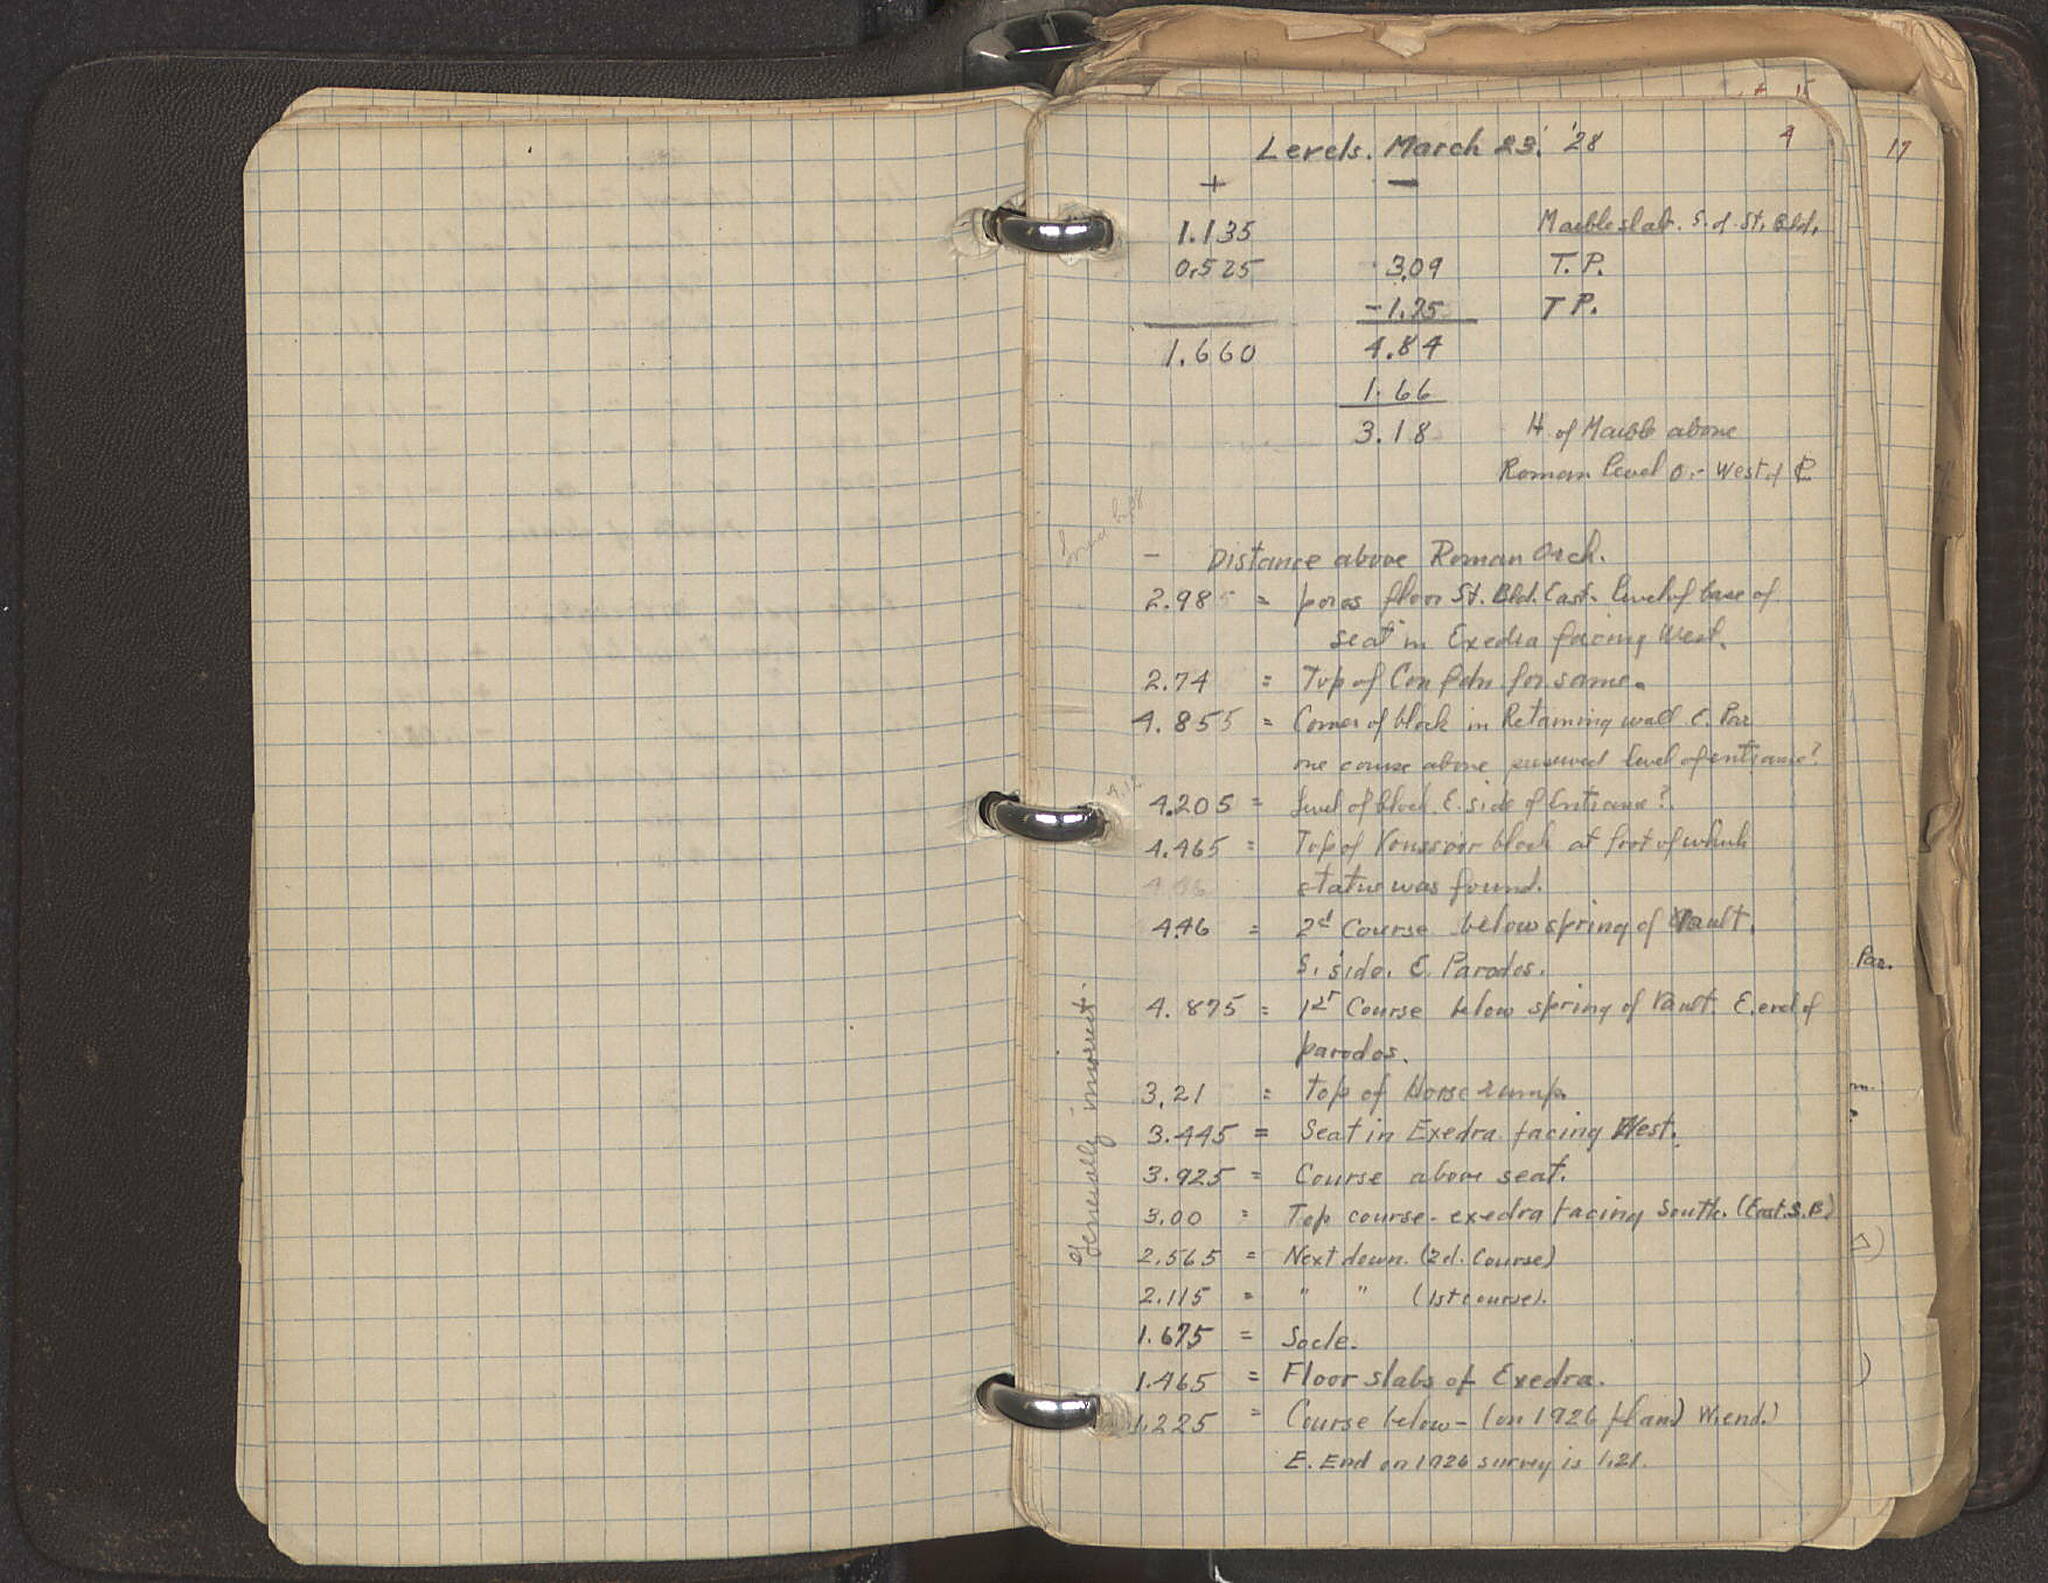 Levels. March 23. '28
4
17
15
+ −
1.135 Marble slab. S. of St. Bld.
0.525 3.09 T.P.
-1.75 T P.
1.660 4.84
1.66
3.18 H of Marble above
Roman level o.- West of ₵
− Distance above Roman Orch.
2.985 = poros floor St. Bld. East. level of base of
seat in Exedra facing West.
2.74 = Top of Con fdn for same.
4.855 = Corner of block in Retaining wall E. Par
one course above preserved level of entrance?
4.12
4.205 = Level of block E. side of Entrance?
4.465 = Top of Voussoir block at foot of which
statue was found.
4.46 = 2d Course below spring of Vault.
S. side. E. Parodos.
4.875 = 1st Course below spring of Vault. E. end of
parodos.
3.21 = top of Horse rump.
3.445 = Seat in Exedra facing West.
3.925 = Course above seat.
3.00 = Top course - exedra facing South. (East. S.B.)
2.565 = Next down. (2d. Course)
2.115 = " " (1st course).
1.675 = Socle.
1.465 = Floor slabs of Exedra.
1.225 = Course below - (on 1926 plan) W. end.)
E. End on 1926 survey is 1.21.
Generally incorrect.
Par.